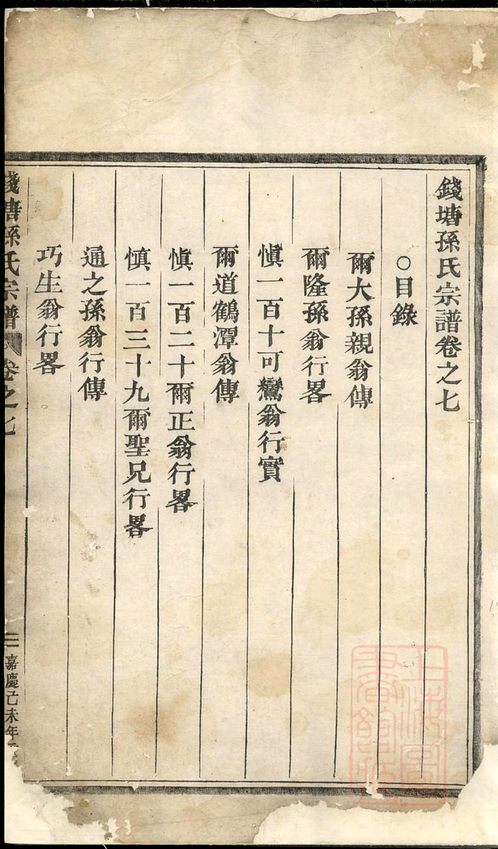 錢塘孫氏宗譜卷之七
○目錄
爾大孫親翁傳
爾隆孫翁行畧
慎一百十可鸞翁行實
爾道鶴潭翁傳
慎一百二十爾正翁行畧
慎一百三十九爾聖兄行畧
通之孫翁行傳
巧生翁行畧
錢塘孫氏宗譜 卷之七 嘉慶己未年